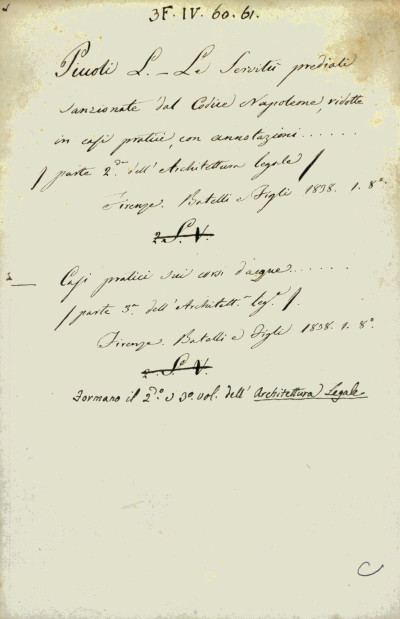 3F. IV. 60. 61.
Piccoli L. - Le Servitù prediali
sanzionate dal Codice Napoleone, ridotte
in casi pratici, con annotazioni......
/ parte 2.da dell'Architettura legale /
Firenze. Batelli e Figli 1838. 1. 8º.
Casi pratici sui corsi d'acque.......
/ parte 3.a dell'Architett.a leg.e /.
Firenze. Batelli e Figli 1838. 1. 8º.
Formano il 2.º e 3º. vol. dell' Architettura Legale.
C